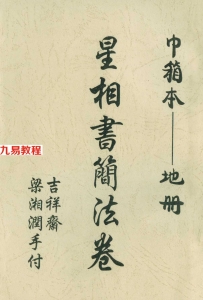 巾箱本——地册
星相書簡法卷
吉祥齋
梁湘潤手付
九易教程